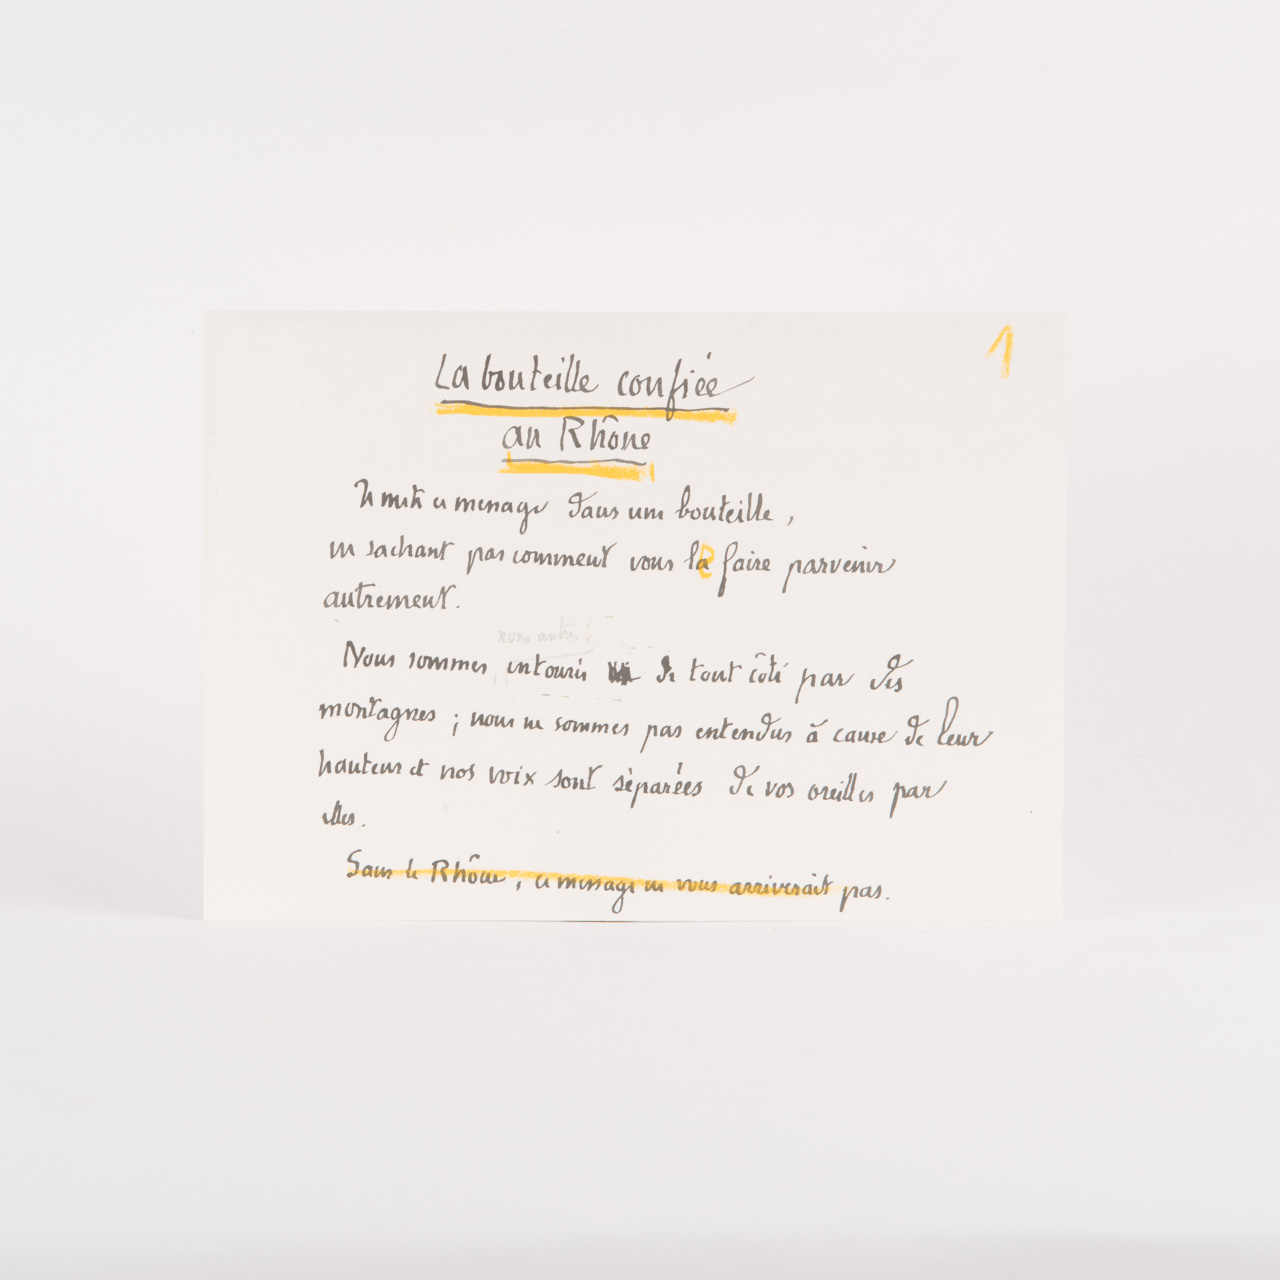 1
La bouteille confiée
au Rhône
Je mets ce message dans une bouteille,
ne sachant pas comment vous le faire parvenir
autrement.
nous autres
Nous sommes entourés de tout côté par des
montagnes ; nous ne sommes pas entendus à cause de leur
hauteur et nos voix sont séparées de vos oreilles par
elles.
Sans le Rhône, ce message ne vous arriverait pas.